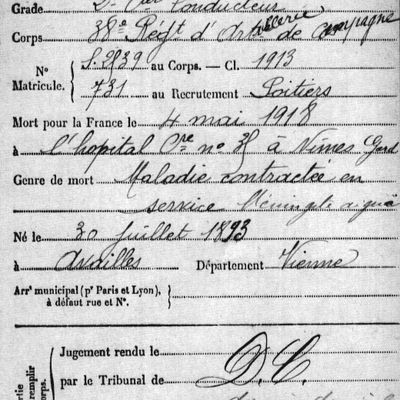 Grade 2e Cal Conducteur
Corps 38e Régt d'Artillerie de Campagne
No Matricule. 
au Corps. — Cl. 1913
731 au Recrutement Poitiers
Mort pour la France le 4 mai 1918
à L'hopital Cre no 38 a Nimes Gard
Genre de mort Maladie contractée en
service Méningite aiguë
Né le 30 Juillet 1893
à Availles Département Vienne
Arrt municipal (pr Paris et Lyon),
à défaut rue et No.
Jugement rendu le
par le Tribunal de
D.C.